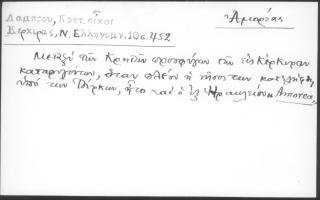 Λαμπρου, Κρητ. οἶκοι
Κερκίρας, Ν. Ελληνομν. 10 σ. 452
Ἀμορέας
Μεταξὺ τῶν Κρητῶν προσφύγων τῶν εἰς Κέρκυραν
καταφυγόντων, ὅταν πλέον ἡ νῆσος των κατελήφθη
ὑπὸ τῶν Τούρκων, ἦτο καὶ ὁ ἐξ Ἡρακλείου Amorea